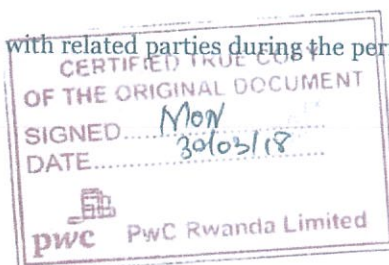 with related parties during the per
CERTIFIED TRUE COPY
OF THE ORIGINAL DOCUMENT
SIGNED.....Mon.....
DATE.....30/03/18.....
pwc PwC Rwanda Limited